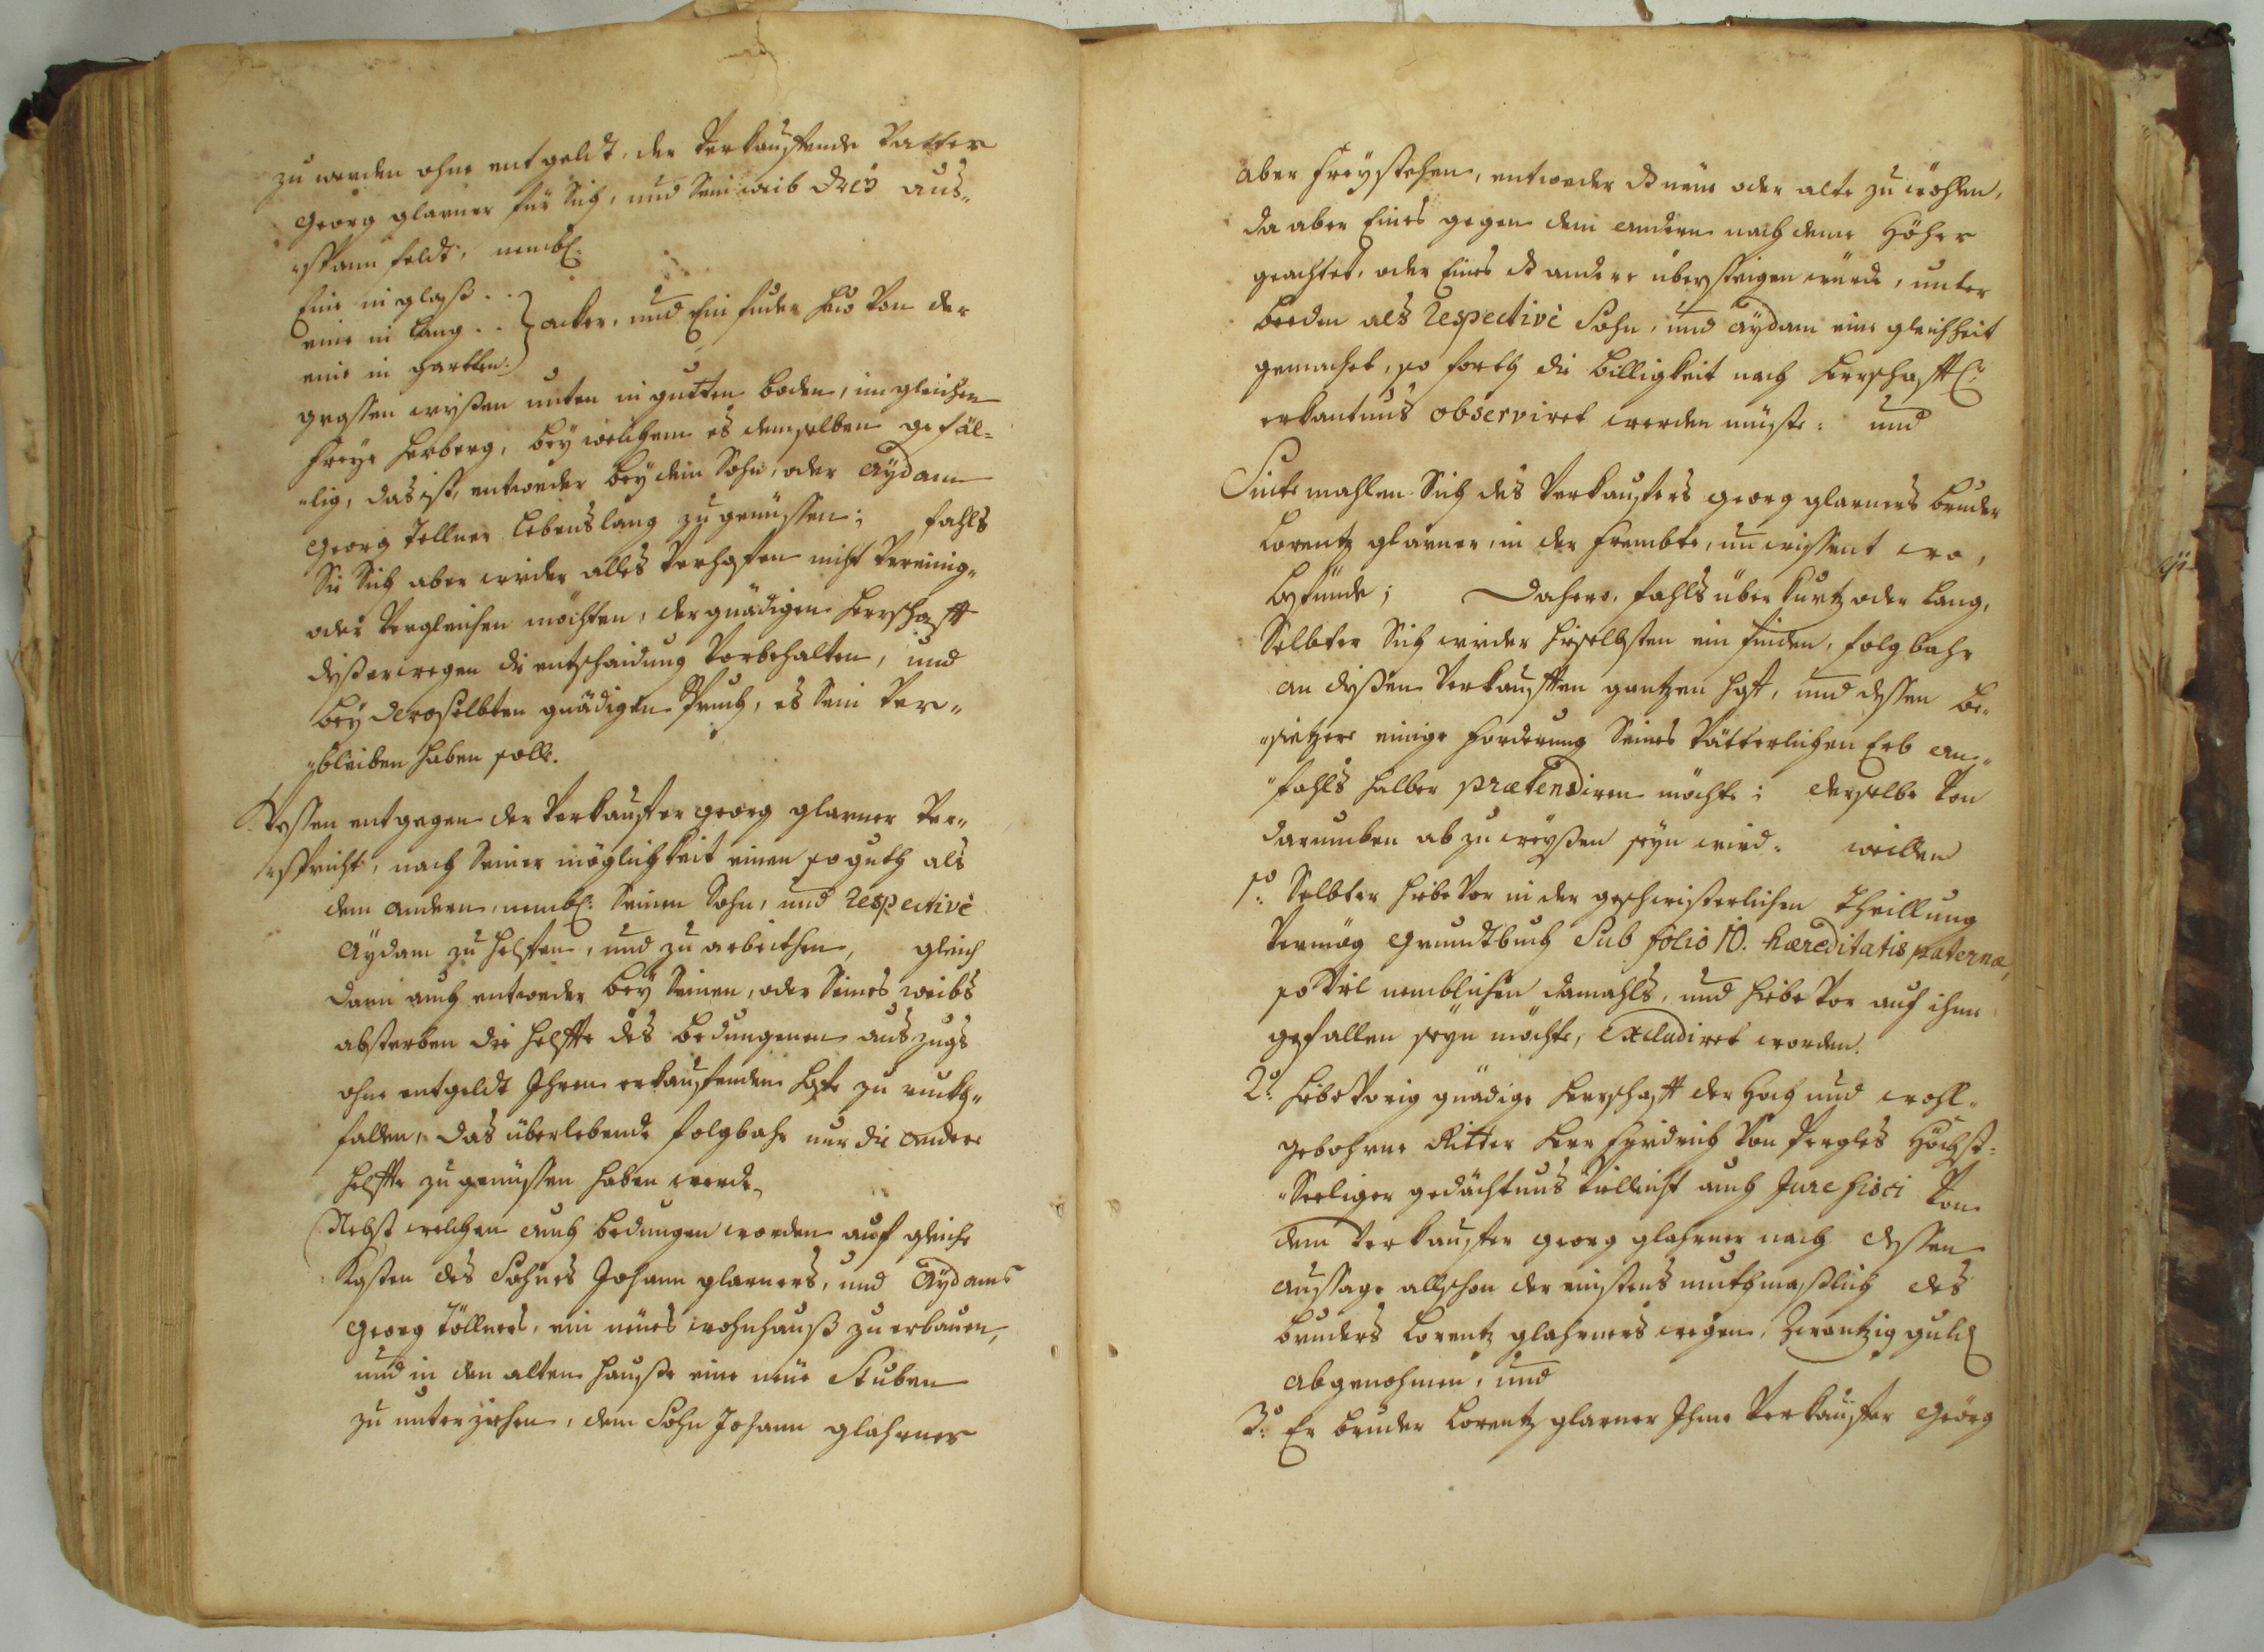 zu werden ohne entgeldt, der Verkauffende Vatter
Georg glarner für Sich, und Sein weib dreÿ aus„
„spann feldt, nembl:
Eine in glaß . .
eine in Lang . . } acker, und Ein fuder heü Von der
eine in garttln.
grossen wißen unten in gutten boden, imgleichen
freÿe herberg, beÿ welchem es demselben gefäl„
„lig, das ist, entweder beÿ dem Sohn, oder Aÿdam
Georg Tollner lebenslang zu genüssen; fahls
Sie Sich aber wieder alles Verhoffen nicht Vereinig„
oder Vergleichen möchten, der gnädigen herrschafft
dißerwegen die entschaidung Vorbehalten, und
beÿ deroselbten gnädigen Spruch, es Sein Ver„
„bleiben haben solle.
Dessen entgegen der Verkauffer georg glarner Ver„
„spricht, nach Seiner möglichkeit einen so guth als
dem andern, nembl: Seinen Sohn, und respectivè
Aÿdam zu helffen, und zu arbeithen, gleich
dann auch entweder beÿ Seinen, oder Seines weibs
absterben die helffte des bedungenen auszugs
ohne entgeldt Ihrem erkauffenden hofe zu ruckh„
fallen, das überlebende folgbahr nur die andere
helffte zu genüssen haben werde,
Nebst welchen auch bedungen worden auf gleiche
Kosten des Sohnes Johann glarners, und Aÿdams
Georg Töllners, ein neües wohnhauß zu erbauen,
und in den alten hauße eine neüe Stuben
zu unterziehen, dem Sohn Johann glahrner
aber freÿstehen, entweder dz neüe oder alte zu wöhlen,
da aber Eines gegen dem andern nach deme Höher
geachtet, oder Eines dz andere übersteigen wurde, unter
beeden als respectivè Sohn, und aÿdam eine gleichheit
gemachet, so forth die billigkeit nach herrschafftl:
erkantnus observiret werden müste: und
Sintemahlen Sich des Verkauffers georg glarners bruder
Lorentz glarner, in der frembte, unwissent wo,
befünde; Dahero, fahls über kurtz oder lang,
Selbter Sich wieder hieselbsten einfinden, folgbahr
an dißen Verkaufften gantzen hof, und dessen be„
„sietzere einige forderung Seines Vätterlichen Erb an„
„fahls halber prætendiren möchte; derselbe Von
darumben abzuweÿßen seÿn wird. weillen
1o: Selbter hiebevor in der geschwisterlichen Theillung
Vermög Grundtbuch Sub folio 10. hæreditatis paternæ,
so Viel nemblichen damahls, und hiebevor auf ihne
gefallen seÿn möchte, excludiret worden.
2o: hiebevorig gnädige herrschafft der Hoch und wohl„
gebohrne Ritter Herr Fridrich Von Pergles Höchst„
„Seeliger gedächtnus Villeicht auch Jure fisci Von
dem Verkauffer georg glahrner nach dessen
aussage allschon der einstens muthmaßlich des
bruders Lorentz glahrners wegen, Zwantzig guld
abgenohmen, und
3o: Er bruder Lorentz glarner Ihme Verkauffer Georg